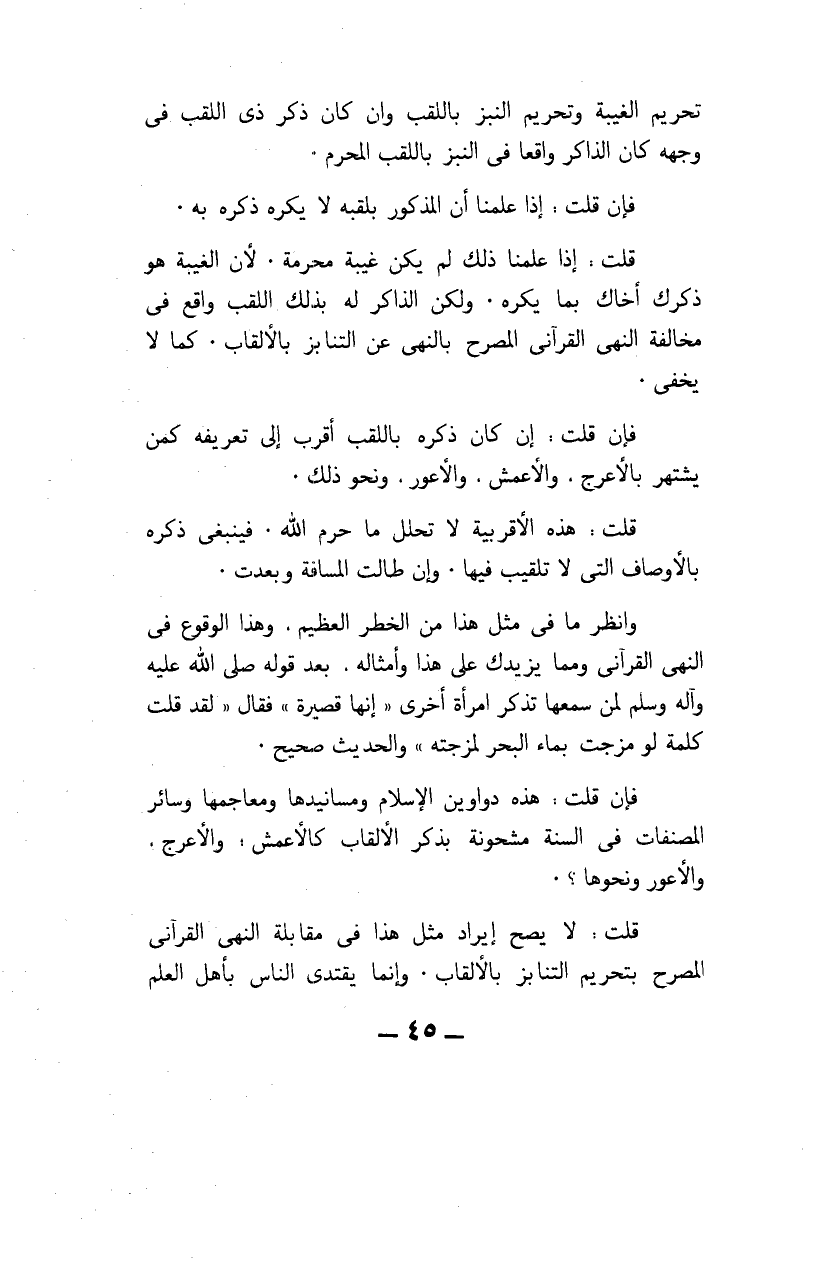 تحريم الغيبة وتحريم النبز باللقب وان كان ذكر ذى اللقب فى
وجهه كان الذاكر واقعا فى النبز باللقب المحرم ٠
فإن قلت : إذا علمنا أن المذكور بلقبه لا يكره ذكره به ٠
قلت : إذا علمنا ذلك لم يكن غيبة محرمة ٠ لأن الغيبة هو
ذكرك أخاك بما يكره ٠ ولكن الذاكر له بذلك اللقب واقع فى
مخالفة النهى القرآنى المصرح بالنهى عن التنابز بالألقاب ٠ كما لا
يخفى ٠
فإن قلت : إن كان ذكره باللقب أقرب إلى تعريفه كمن
يشتهر بالأعرج ، والأعمش ، والأعور ، ونحو ذلك ٠
قلت : هذه الأقربية لا تحلل ما حرم الله ٠ فينبغى ذكره
بالأوصاف التى لا تلقيب فيها ٠ وإن طالت المسافة وبعدت ٠
وانظر ما فى مثل هذا من الخطر العظيم ، وهذا الوقوع فى
النهى القرآنى ومما يزيدك على هذا وأمثاله ، بعد قوله صلى الله عليه
وآله وسلم لمن سمعها تذكر امرأة أخرى « إنها قصيرة » فقال « لقد قلت
كلمة لو مزجت بماء البحر لمزجته » والحديث صحيح ٠
فإن قلت : هذه دواوين الإسلام ومسانيدها ومعاجمها وسائر
المصنفات فى السنة مشحونة بذكر الألقاب كالأعمش ؛ والأعرج ،
والأعور ونحوها ؟ ٠
قلت : لا يصح إيراد مثل هذا فى مقابلة النهى القرآنى
المصرح بتحريم التنابز بالألقاب ٠ وإنما يقتدى الناس بأهل العلم
ــ ٤٥ ــ